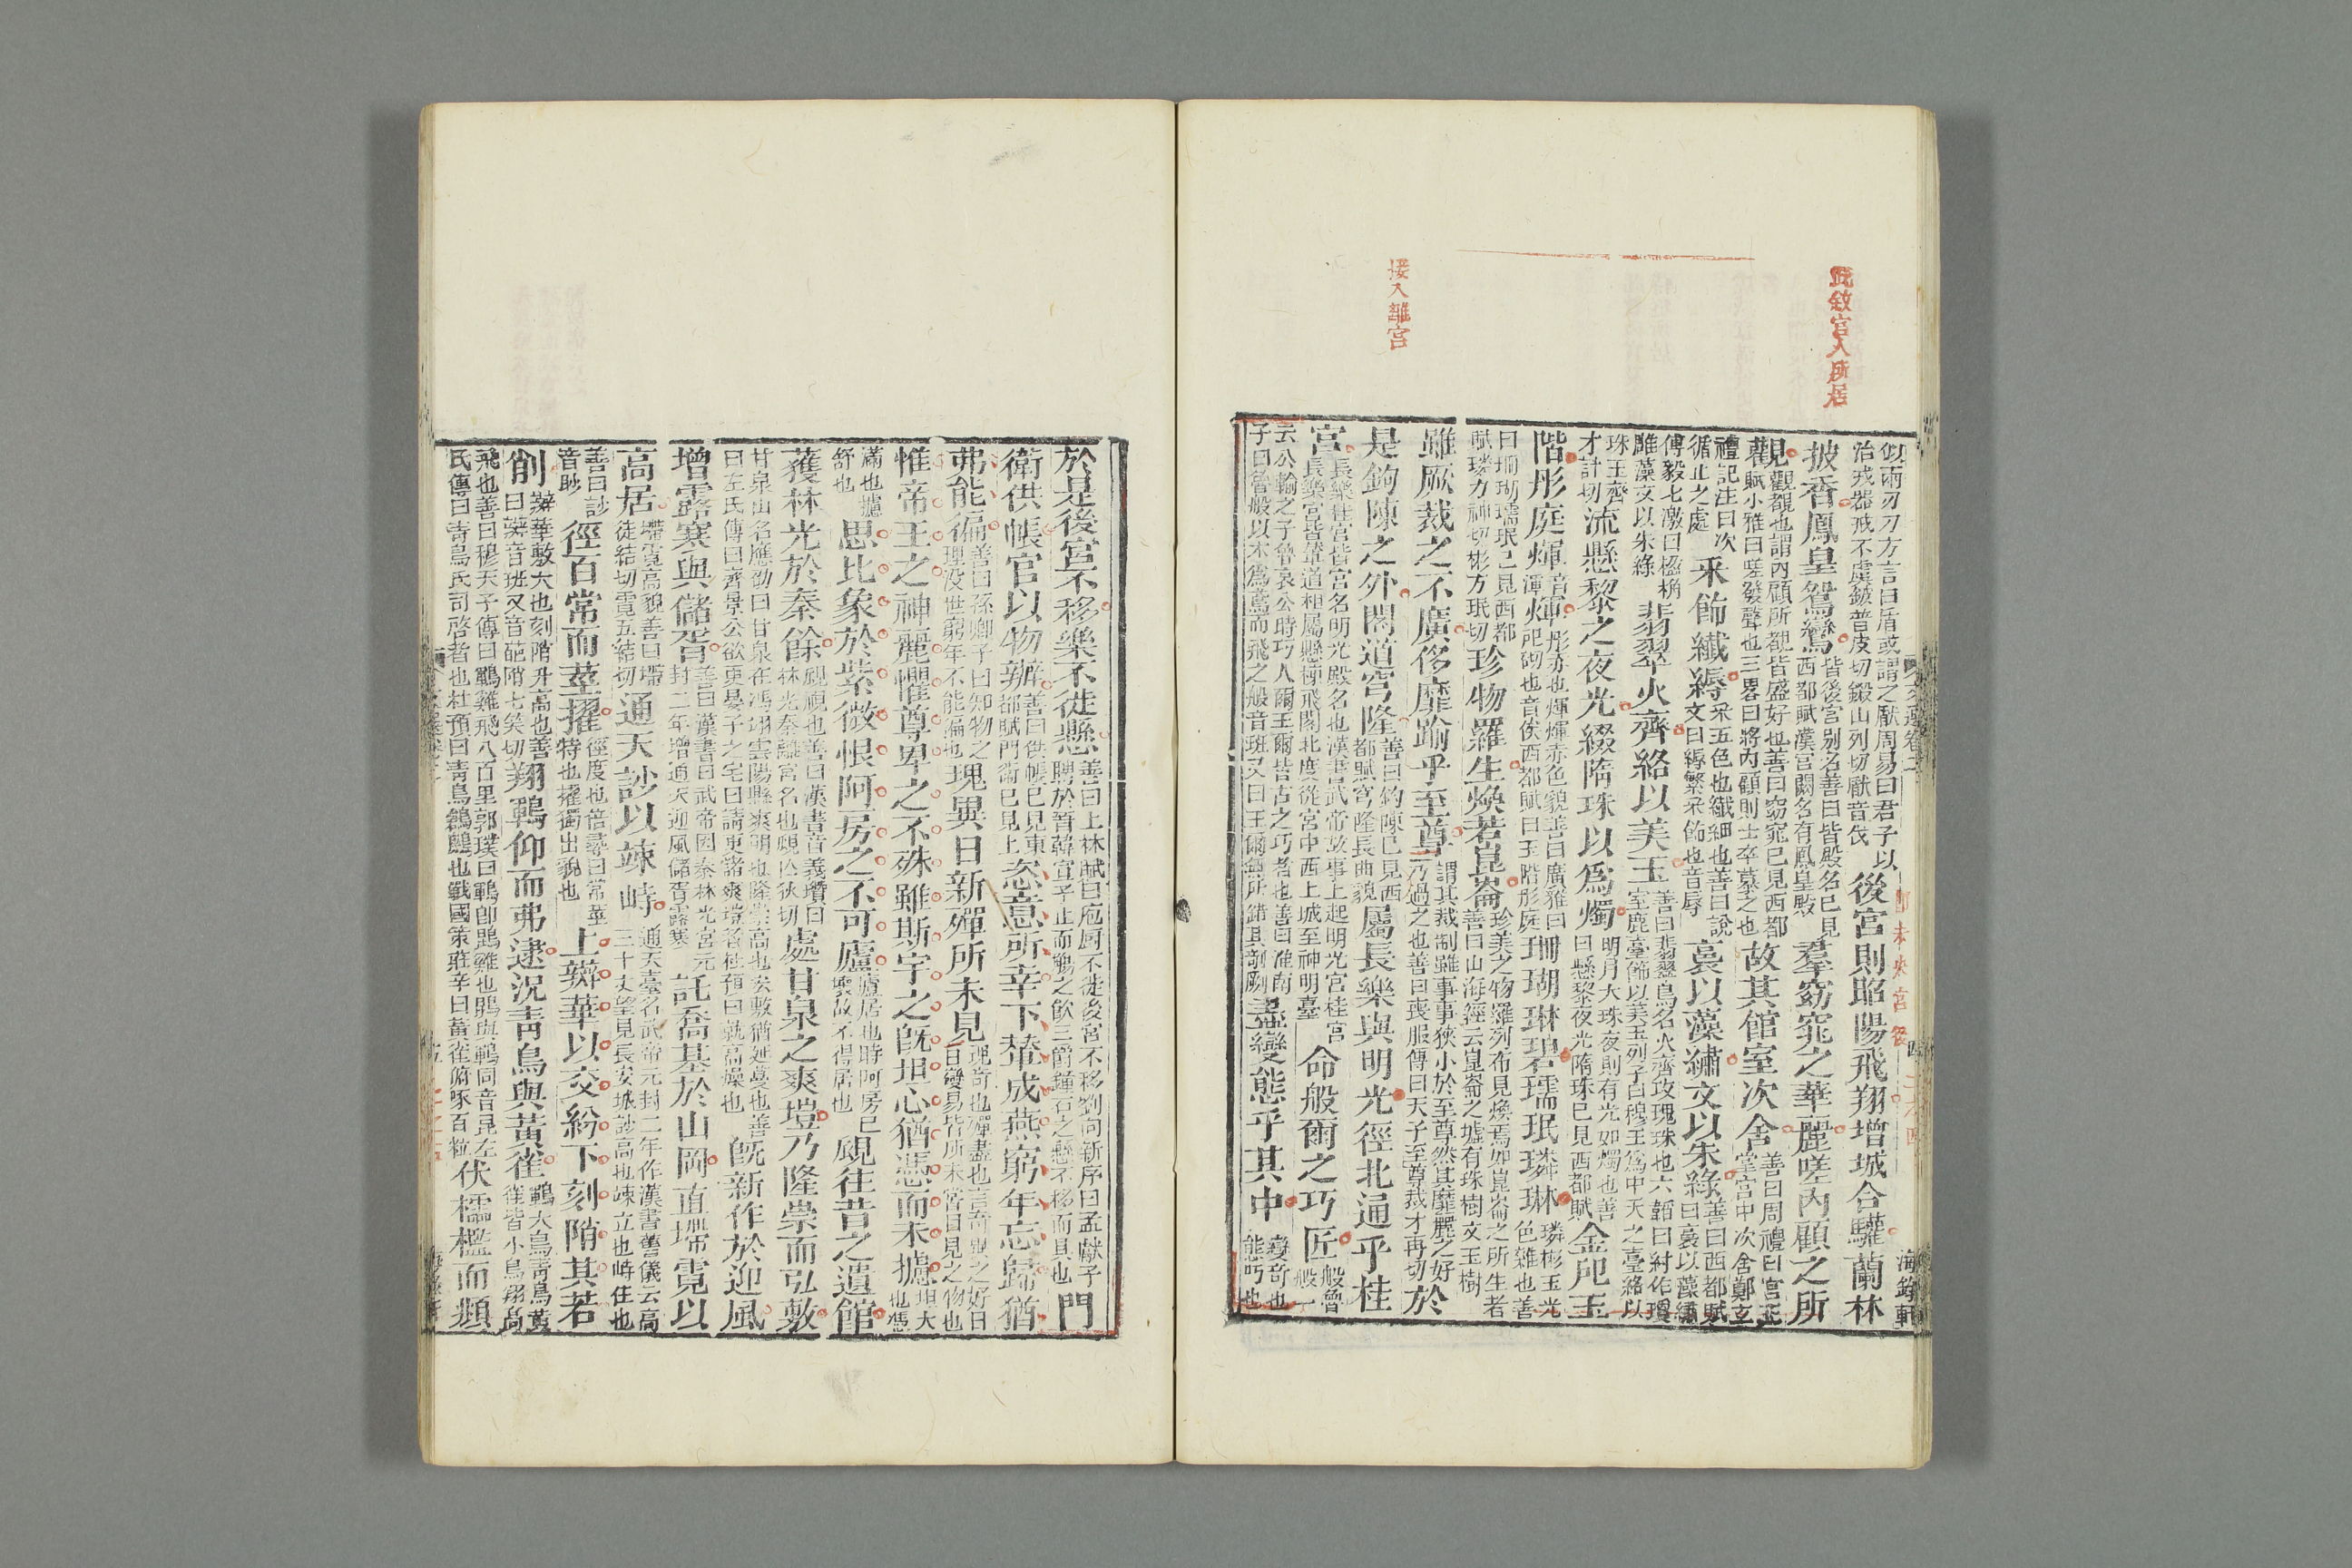 既敘宮人所居
接入離宮
似兩刃刀方言曰盾或謂之瞂周易曰君子以
治戎器戒不虞鎩普皮切鍛山列切瞂音伐
後宮則昭陽飛翔增城合驩蘭林
披香鳳皇鴛鸞
皆後宮別名善曰皆殿名已見
西都賦漢宮闕名有鳳皇殿
羣窈窕之華麗嗟內顧之所
觀
觀覩也謂內顧所觀皆盛好也善曰窈窕已見西都
賦小雅曰嗟發聲也三畧曰將內顧則士卒慕之也
故其館室次舍
善曰周禮曰宮正
掌宮中次舍鄭玄
禮記注曰次
循止之處
采飾纖縟
采五色也纖細也善曰說
文曰縟繁采飾也音辱
裛以藻繡文以朱綠
善曰西都賦
曰裛以藻繡
傅毅七激曰楹桷
雕藻文以朱綠
翡翠火齊絡以美玉
善曰翡翠鳥名火齊玫瑰珠也六韜曰紂作瓊
室鹿臺飾以美玉列子曰穆王爲中天之臺絡以
珠玉齊
才計切
流懸黎之夜光綴隋珠以爲燭
明月大珠夜則有光如燭也善
曰懸黎夜光隋珠已見西都賦
金戺玉
階彤庭煇
音
渾
煇
彤赤也煇煇赤色貌善曰廣雅曰
戺砌也音俟西都賦曰玉階彤庭
珊瑚琳碧瓀珉璘彬
璘彬玉光
色雜也善
曰珊瑚瓀珉已見西都
賦璘力神切彬方珉切
珍物羅生焕若崑崙
珍美之物羅列布見煥焉如崑崙之所生者
善曰山海經云崑崙之墟有珠樹文玉樹
雖厥裁之不廣侈靡踰乎至尊
謂其裁制雖事事狹小於至尊然其靡麗之好
乃過之也善曰喪服傳曰天子至尊裁才再切
於
是鉤陳之外閣道穹隆
善曰鉤陳已見西
都賦穹隆長曲貌
屬長樂與明光徑北通乎桂
宮
長樂桂宮皆宮名明光殿名也漢書武帝故事上起明光宮桂宮
長樂宮皆輦道相屬懸棟飛閣北度從宮中西上城至神明臺
命般爾之巧匠
般魯
般一
云公輸之子魯哀公時巧人爾王爾皆古之巧者也善曰淮南
子曰魯般以木爲鳶而飛之般音班又曰王爾無所錯其剞劂
盡變態乎其中
變奇也
態巧也
於是後宮不移樂不徙懸
善曰上林賦曰庖厨不徙後宮不移劉向新序曰孟獻子
聘於晉韓宣子止而觴之飲三爵鐘石之懸不移而具也
門
衛供帳官以物辦
善曰供帳已見東
都賦門衛已見上
恣意所幸下輦成燕窮年忘歸猶
弗能徧
善曰孫卿子曰知物之
理沒世窮年不能徧也
瑰異日新殫所未見
瑰奇也殫盡也言奇異之好日
日變易皆所未嘗目見之物也
惟帝王之神麗懼尊卑之不殊雖斯宇之旣坦心猶憑而未攄
坦大
也憑
滿也攄
舒也
思比象於紫微恨阿房之不可廬
廬居也時阿房已
壞故不得居也
覛往昔之遺館
獲林光於秦餘
覛視也善曰漢書音義瓚曰
林光秦離宮名也覛亡狄切
處甘泉之爽塏乃隆崇而弘敷
甘泉山名應劭曰甘泉在馮翊雲陽縣爽明也隆崇高也弘敷猶延蔓也善
曰左氏傳曰齊景公欲更晏子之宅曰請更諸爽塏者杜預曰就高燥也
旣新作於迎風
增露寒與儲胥
善曰漢書曰武帝因秦林光宮元
封二年增通天迎風儲胥露寒
託喬基於山岡直墆霓以
高居
墆霓高貌善曰墆
徒結切霓五結切
通天訬以竦峙
通天臺名武帝元封二年作漢書舊儀云高
三十丈望見長安城訬高也竦立也峙住也
善曰訬
音眇
徑百常而莖擢
徑度也倍尋曰常莖
特也擢獨出貌也
上辬華以交紛下刻陗其若
削
辬華敷大也刻陗升高也善
曰辬音班又音葩陗七笑切
翔鶤仰而弗逮況青鳥與黃雀
鶤大鳥青鳥黃
雀皆小鳥翔高
飛也善曰穆天子傳曰鶤雞飛八百里郭璞曰鶤卽鵾雞也鵾與鶤同音昆左
氏傳曰青鳥氏司啓者也杜預曰青鳥鶬鷃也戰國策莊辛曰黃雀俯啄百粒
伏櫺檻而頫
海錄軒